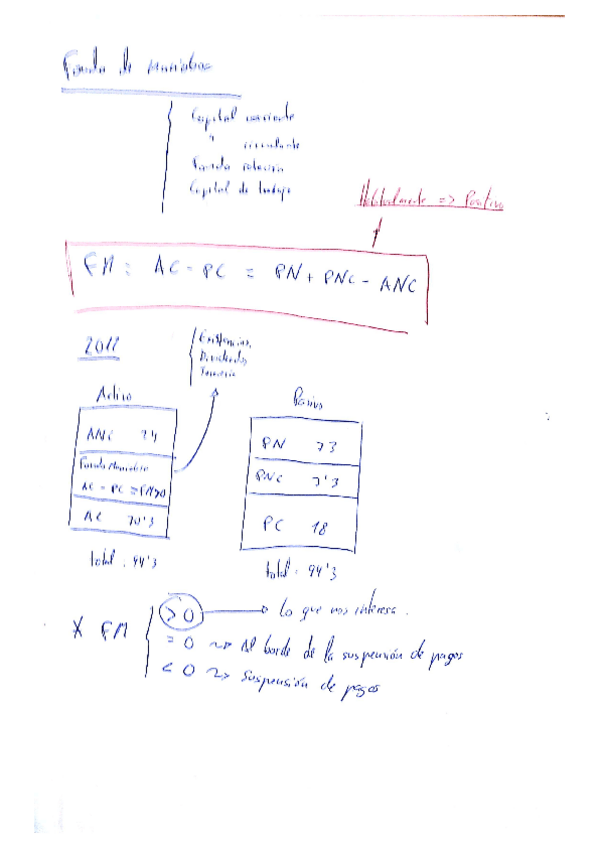 Fondo de maniobra
Capital corriente
" circulante
Fondo rotación
Capital de trabajo
Habitualmente => Positivo
FM = AC - PC = PN + PNC - ANC
2011
Existencias,
Tesorería
Activo
ANC 24
Fondo Maniobra
AC - PC = FM>0
AC 70'3
total: 94'3
Pasivo
PN 73
PNC 3'3
PC 18
total: 94'3
* FM
> 0 → lo que nos interesa.
= 0 ~> Al borde de la suspensión de pagos
< 0 ~> suspensión de pagos